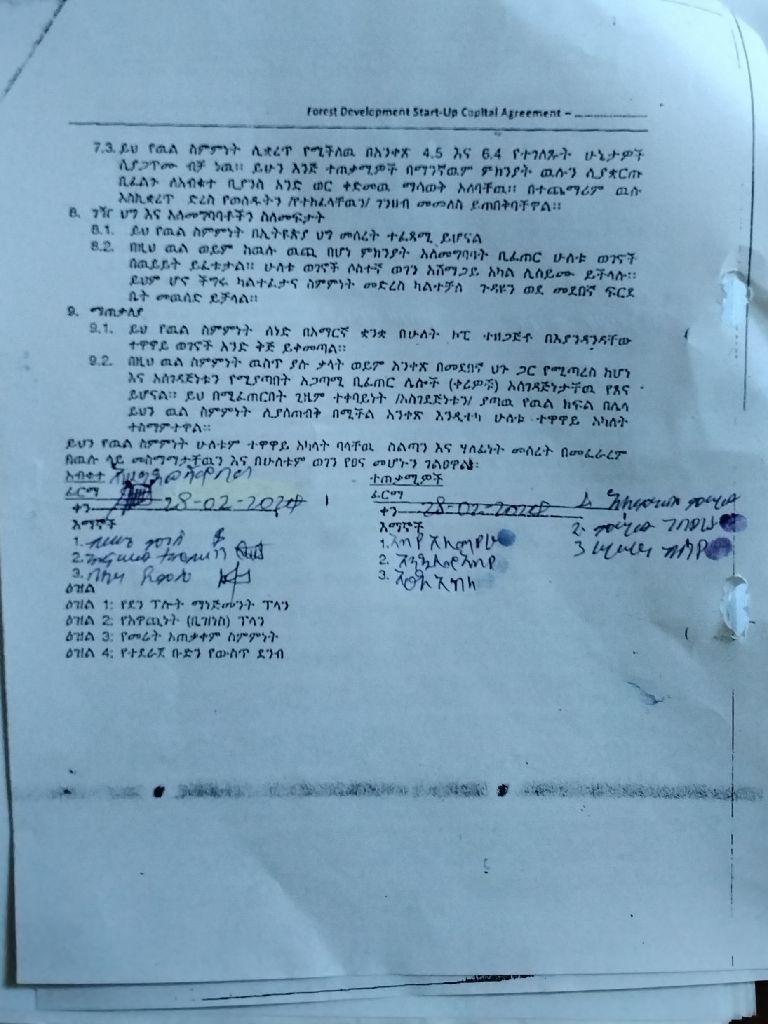 Forest Development Start-Up Capital Agreement –
7.3. ይህ የዉል ስምምነት ሊቋረጥ የሚችለዉ በአንቀጽ 4.5 እና 6.4 የተገለጹት ሁኔታዎች
ሲያጋጥሙ ብቻ ነዉ፡፡ ይሁን እንጅ ተጠቃሚዎች በማንኛዉም ምክንያት ዉሉን ሲያቋርጡ
ቢፈልጉ ለአብቁተ ቢያንስ አንድ ወር ቀድመዉ ማሳወት አለባቸዉ፡፡ በተጨማሪም ዉሉ
እስኪቋረጥ ድረስ የወሰዱትን /የተከፈላቸዉን/ ገንዘብ መመለስ ይጠበቅባቸዋል፡፡
8. ገዥ ህግ እና አለመግባባቶችን ስለመፍታት
8.1. ይህ የዉል ስምምነት በኢትዮጵያ ህግ መሰረት ተፈጻሚ ይሆናል
8.2. በዚህ ዉል ወይም ከዉሉ ዉጪ በሆነ ምክንያት አለመግባባት ቢፈጠር ሁለቱ ወገኖች
በዉይይት ይፈቱታል፡፡ ሁለቱ ወገኖች ሶስተኛ ወገን አሸማጋይ አካል ሊሰይሙ ይችላሉ፡፡
ይህም ሆኖ ችግሩ ካልተፈታና ስምምነት መድረስ ካልተቻለ ጉዳዩን ወደ መደበኛ ፍርድ
ቤት መዉሰድ ይቻላል፡፡
9. ማጠቃለያ
9.1. ይህ የዉል ስምምነት ሰነድ በአማርኛ ቋንቋ በሁለት ኮፒ ተዘጋጅቶ በእያንዳንዳቸው
ተዋዋይ ወገኖች አንድ ቅጅ ይቀመጣል፡፡
9.2. በዚህ ዉል ስምምነት ዉስጥ ያሉ ቃላት ወይም አንቀጽ በመደበኛ ህጉ ጋር የሚጣረስ ከሆነ
እና አስገዳጅነቱን የሚያጣበት አጋጣሚ ቢፈጠር ሌሎች (ቀሪዎቹ) አስገዳጅነታቸዉ የጸና
ይሆናል፡፡ ይህ በሚፈጠርበት ጊዜም ተቀባይነት /አስገዳጅነቱን/ ያጣዉ የዉል ክፍል በሌላ
ይህን ዉል ስምምነት ሊያስጠብቅ በሚችል አንቀጽ እንዲተካ ሁለቱ ተዋዋይ አካለት
ተስማምተዋል፡፡
ይህን የዉል ስምምነት ሁለቱም ተዋዋይ አካላት ባላቸዉ ስልጣን እና ሃለፊነት መሰረት በመፈራረም
በዉሉ ላይ መስማማታቸዉን እና በሁለቱም ወገን የፀና መሆኑን ገልፀዋል፡
አብቁተ
ተጠቃሚዎች
ፊርማ
ፊርማ
ቀን 28-02-2024
ቀን 28-02-2024
እማኞች
እማኞች
1.
2.
3.
1.
2.
3.
ዕዝል
ዕዝል 1: የደን ፕሎት ማነጅመንት ፕላን
ዕዝል 2: የአዋጪነት (ቢዝነስ) ፕላን
ዕዝል 3: የመሬት አጠቃቀም ስምምነት
ዕዝል 4: የተደራጀ ቡድን የውስጥ ደንብ